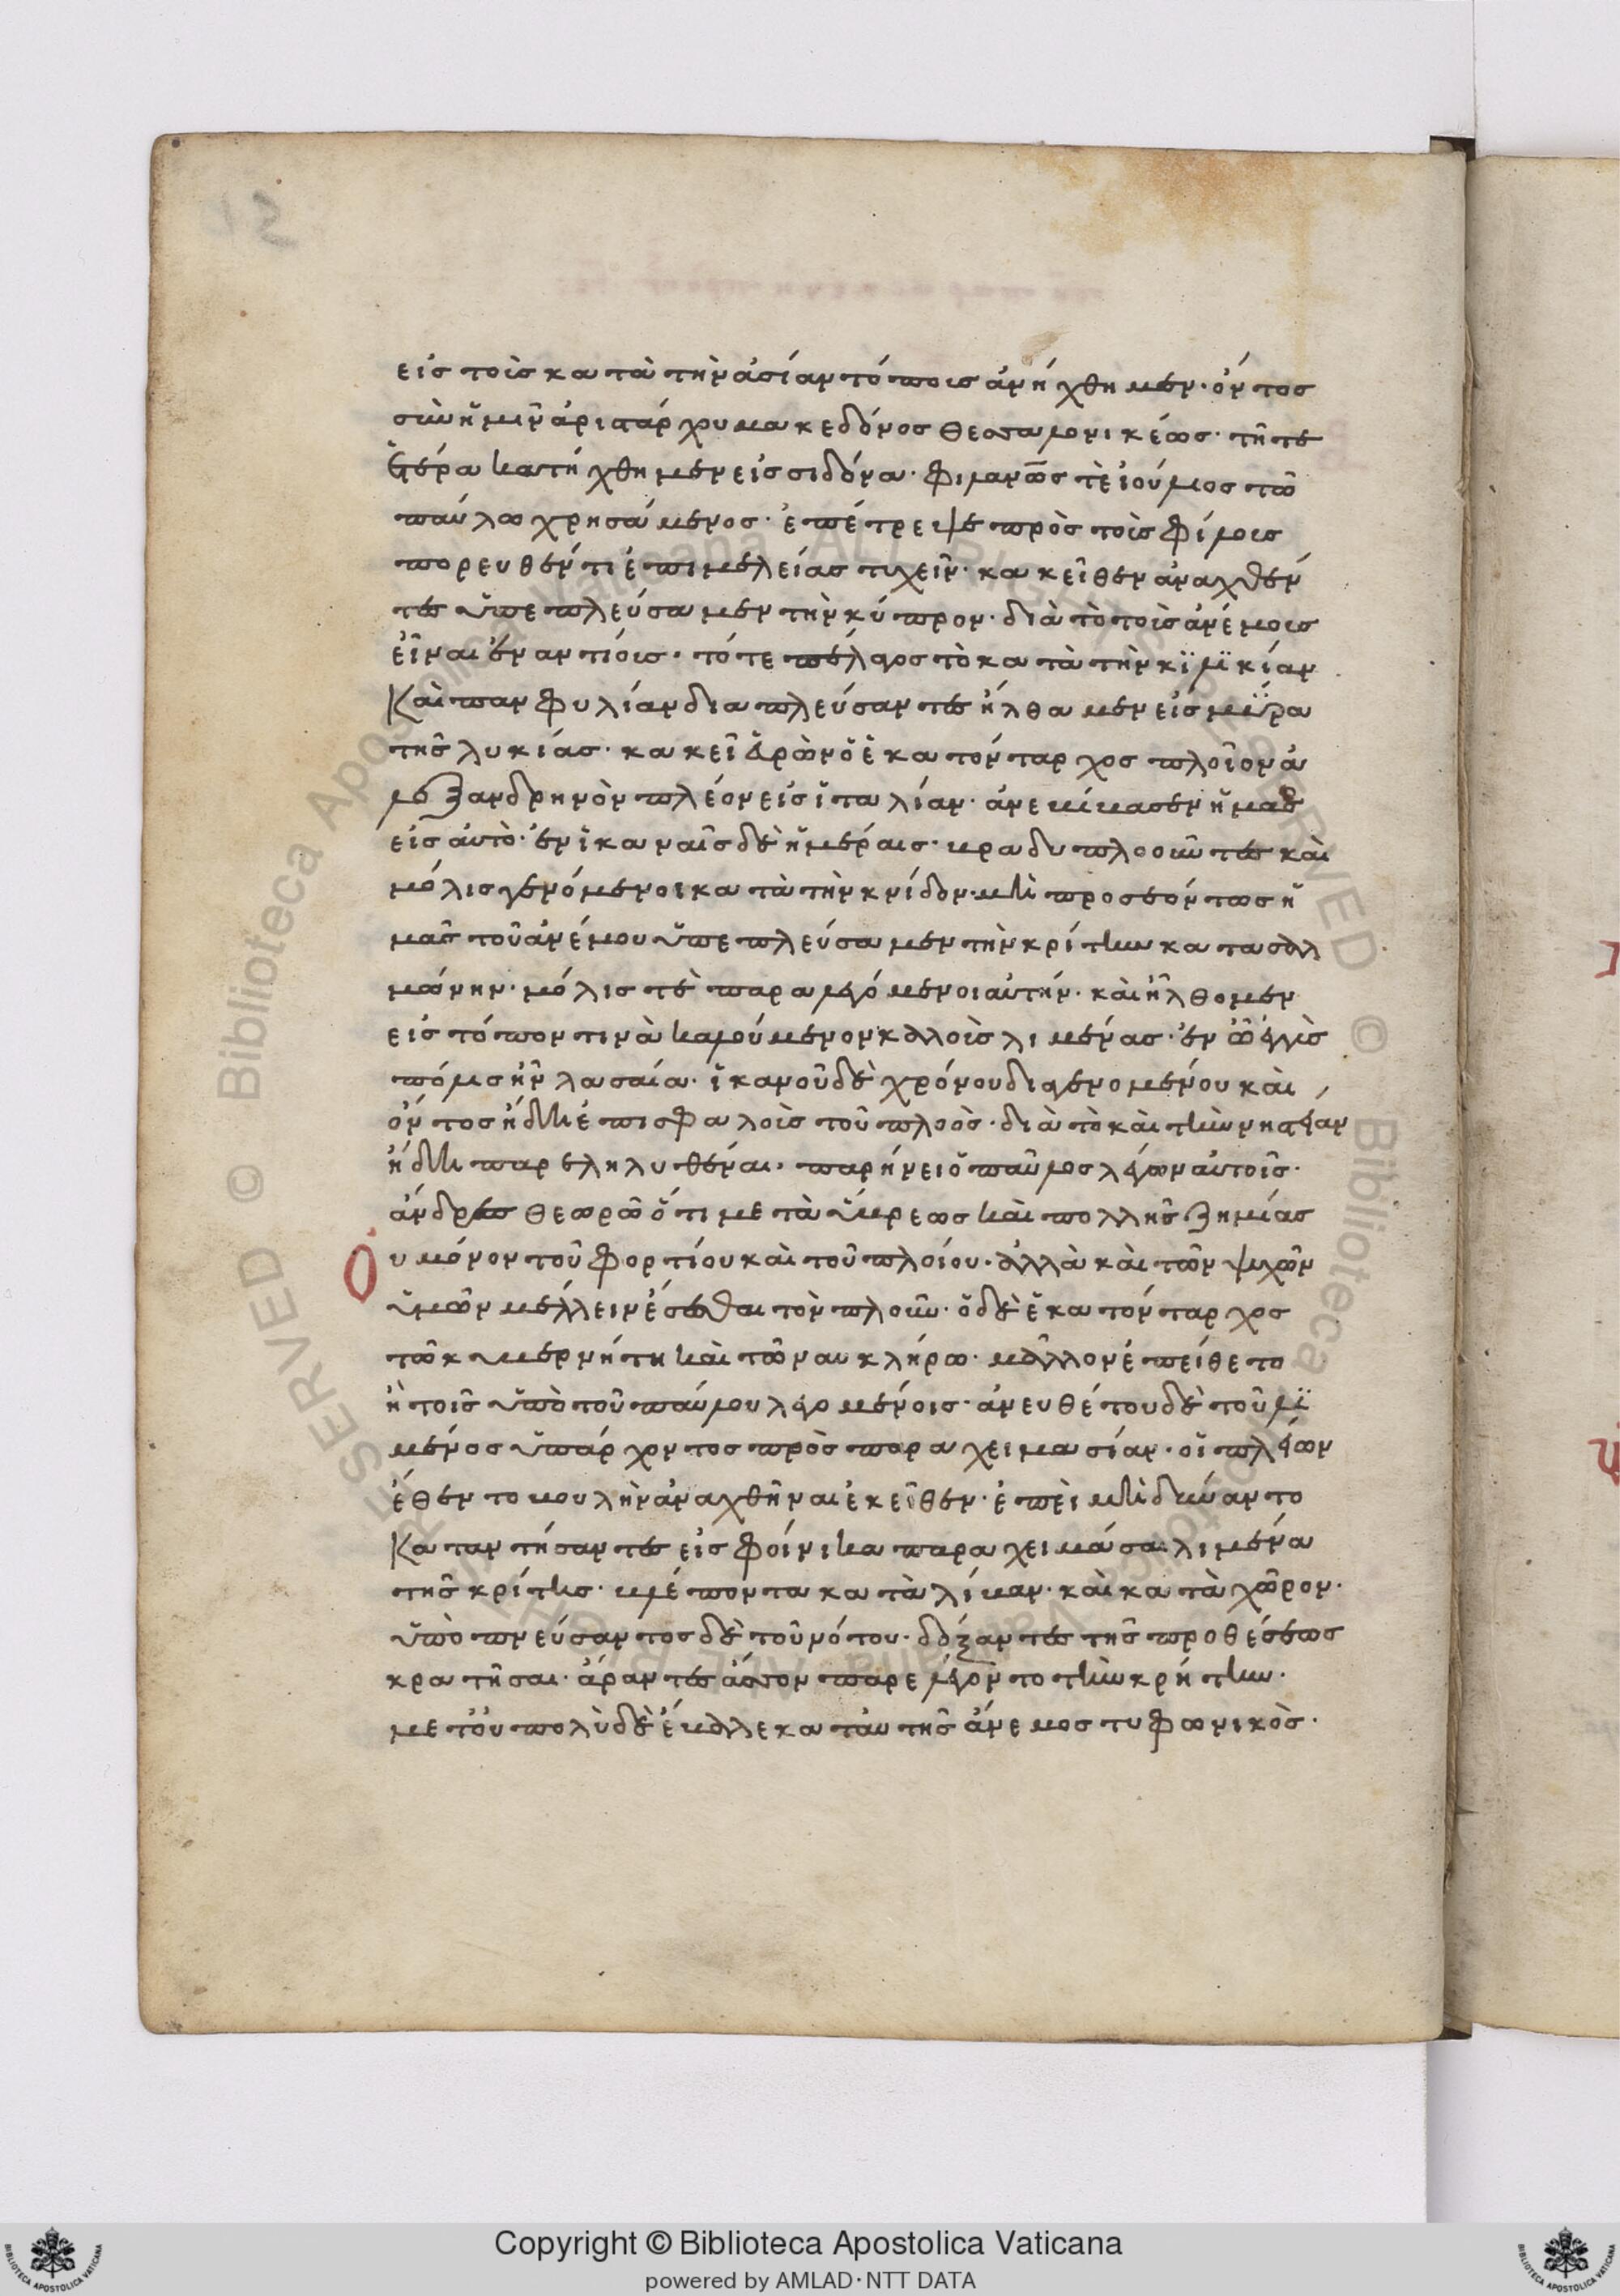 εἰς τοὺς κατὰ τὴν ἀσίαν τόπους ἀνήχθημεν· ὄντος
σὺν ἡμῖν ἀριστάρχου μακεδόνος θεσσαλονικέως· τῆ τε
ἑτέρα κατήχθημεν εἰς σιδόνα· φιλανῶς τὲ ἰούλιος τῶ
παύλω χρησάμενος· ἐπέτρεψε πρὸς τοὺς φίλους
πορευθέντι ἐπιμελείας τυχεῖν· κακεῖθεν ἀναχθέν
τες ὑπεπλεύσαμεν τὴν κύπρον· διὰ τὸ τοὺς ἀνέμους
εἶναι ἐναντίους· τό τε πέλαγος τὸ κατὰ τὴν κϊλϊκίαν
καὶ παμφυλίαν διαπλεύσαντες ἤλθαμεν εἰς μύρα
τῆς λυκίας· κακεῖ εὑρὼν ὁ ἑκατόνταρχος πλοῖον ἀ
λεξανδρηνὸν πλέον εἰς ἰταλίαν· ἀνεβίβασεν ἡμᾶς
εἰς αὐτὸ· ἐν ἱκαναῖς δὲ ἡμέραις· βραδυπλοοῦντες καὶ
μόλις γενόμενοι κατὰ τὴν κνίδον· μὴ προσεόντως ἡ
μᾶς τοῦ ἀνέμου ὑπεπλεύσαμεν τὴν κρίτην κατα σαλ
μώνην· μόλις τὲ παραλεγόμενοι αὐτήν· καὶ ἤλθομεν
εἰς τόπον τινὰ καλούμενον καλλοὺς λιμένας· ἐν ὧ ἐγγὺς
πόλις ἦν λασαία· ἱκανοῦ δὲ χρόνου διαγενομένου καὶ
ὄντος ἤδη ἐπισφαλοὺς τοῦ πλοὸς· διὰ τὸ καὶ τὴν νηστείαν
ἤδη παρεληλυθέναι· παρήνει ὁ παῦλος λέγων αὐτοῖς·
ἄνδρες θεωρῶ ὅτι μετὰ ὕβρεως καὶ πολλῆς ζημίας
Ου μόνον τοῦ φορτίου καὶ τοῦ πλοίου· ἀλλὰ καὶ τῶν ψυχῶν
ὑμῶν μέλλειν ἔσεσθαι τὸν πλοῦν· ὁ δὲ ἑκατόνταρχος
τῶ κυβερνήτη καὶ τῶ ναυκλήρω· μᾶλλον ἐπείθετο
ἢ τοῖς ὑπὸ τοῦ παύλου λεγομένοις· ἀνευθέτου δὲ τοῦ λϊ
μένος ὑπάρχοντος πρὸς παραχειμασίαν· οἱ πλείων
ἔθεντο βουλὴν ἀναχθῆναι ἐκεῖθεν· ἐπεὶ μὴ δύναντο
καταντήσαντες εἰς φοίνικα παραχειμάσαι λιμένα
τῆς κρίτης· βλέποντα κατὰ λίβαν· καὶ κατὰ χῶρον·
ὑποπνεύσαντος δὲ τοῦ νότου· δόξαντες τῆς προθέσεως
κρατῆσαι· ἄραντες ἄσσον παρελέγοντο τὴν κρήτην·
μετ' οὐ πολὺ δὲ ἔβαλλε κατ' αὐτῆς ἄνεμος τυφωνικὸς·
Copyright © Biblioteca Apostolica Vaticana
powered by AMLAD·NTT DATA